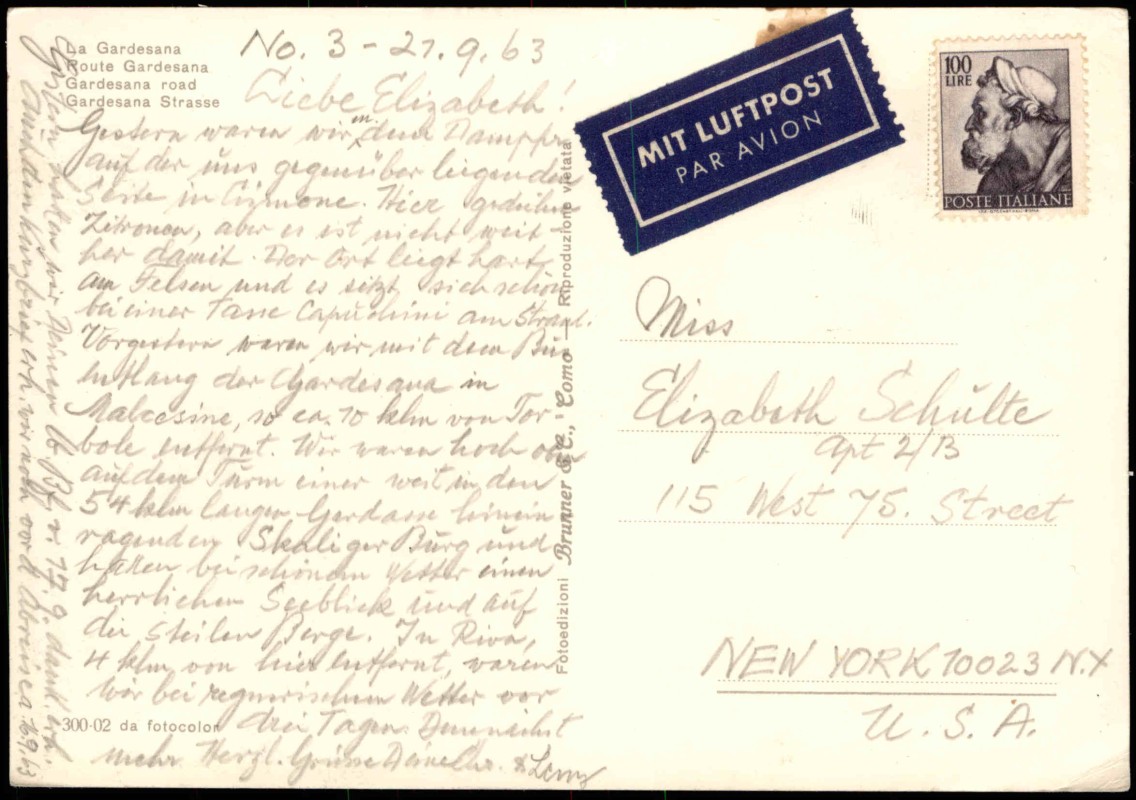 La Gardesana
Route Gardesana
Gardesana road
Gardesana Strasse
No. 3 - 21.9.63
Liebe Elizabeth!
Gestern waren wir m. dem Dampfer
auf der uns gegenüber liegenden
Seite in Limone. Hier gedeihen
Zitronen, aber es ist nicht weit
her damit. Der Ort liegt hart
am Felsen und es sitzt sich schön
bei einer Tasse Capuchini am Strand.
Vorgestern waren wir mit dem Bus
entlang der Gardesana in
Malcesine, so ca. 10 klm von Tor
bole entfernt. Wir waren hoch oben
auf dem Turm einer weit in den
54 klm langen Gardasee hinein
ragenden Skaliger Burg und
hatten bei schönem Wetter einen
herrlichen Seeblick und auf
die steilen Berge. In Riva,
4 klm von hier entfernt, waren
wir bei regnerischem Wetter vor
drei Tagen. Demnächst
mehr Herzl. Grüsse
Deinen
Bf v. 17.9. dank. erh.
erh. wir noch vor d. Abreise
300-02 da fotocolor
Fotoedizioni Brunner & C., Como - Riproduzione vietata
MIT LUFTPOST
PAR AVION
100
LIRE
POSTE ITALIANE
Miss
Elizabeth Schulte
Apt 2/B
115 West 75. Street
NEW YORK 10023 N.Y
U.S.A.